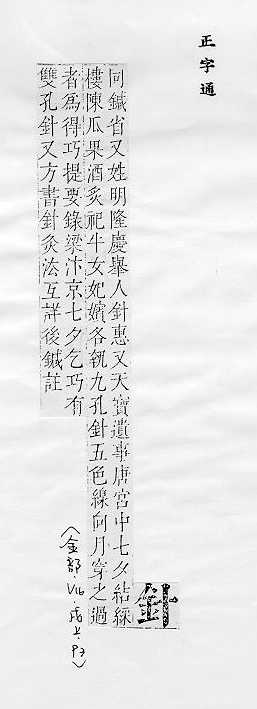 正字通
針
同鍼省又姓明隆慶舉人針惠又天寶遺事唐宮中七夕結綵
樓陳瓜果酒炙祀牛女妃嬪各執九孔針五色線向月穿之過
者爲得巧提要錄梁汴京七夕乞巧有
雙孔針又方書針灸法互詳後鍼註
(金部·V16·戌上·P3)